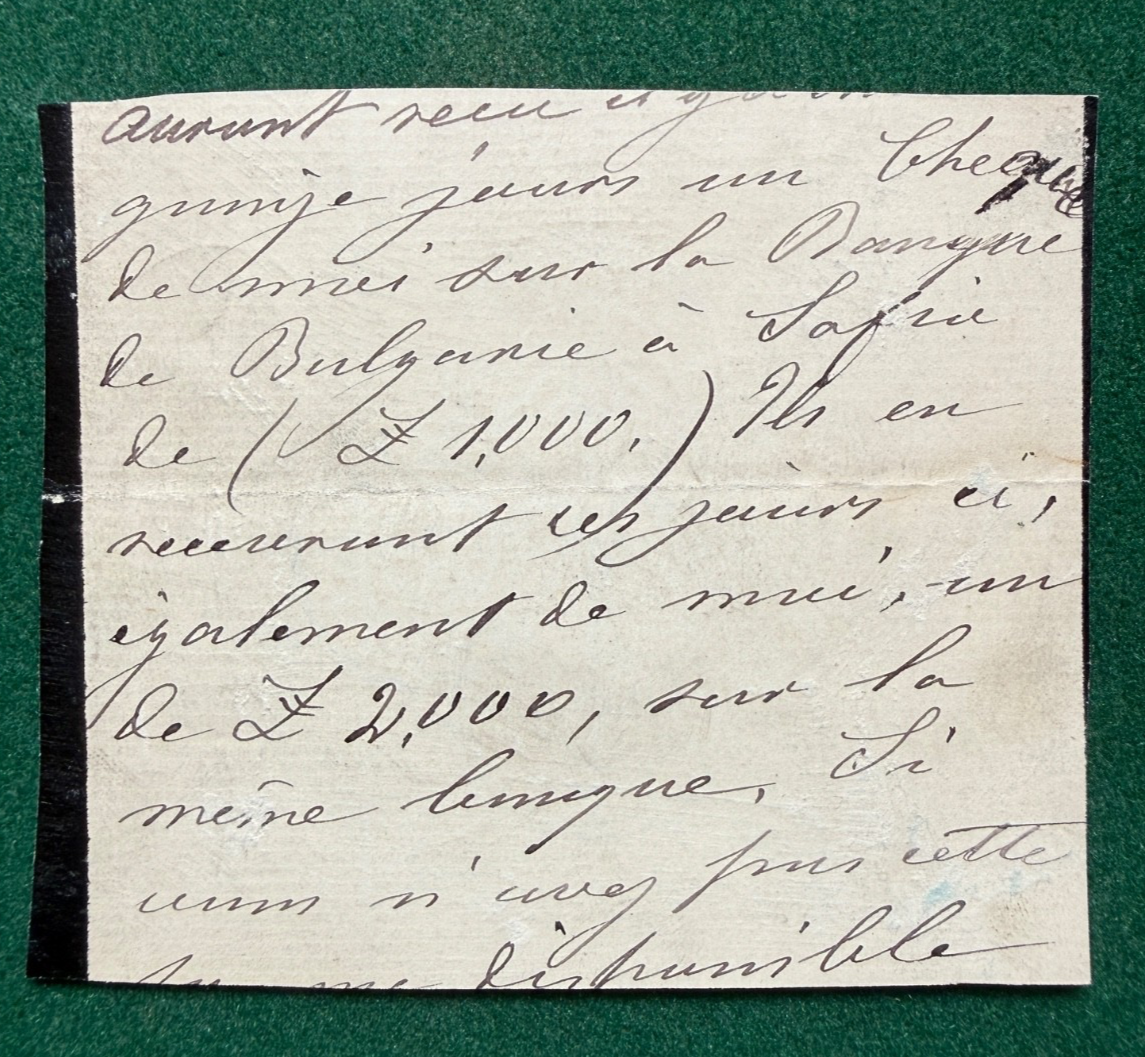 auront reçu il y a
quinze jours un Cheque
de moi sur la Banque
de Bulgarie à Sofia
de (£ 1,000.) Ils en
recevront ces jours ci,
également de moi, un
de £ 2,000, sur la
même banque. Si
vous n'avez pas cette
somme disponible